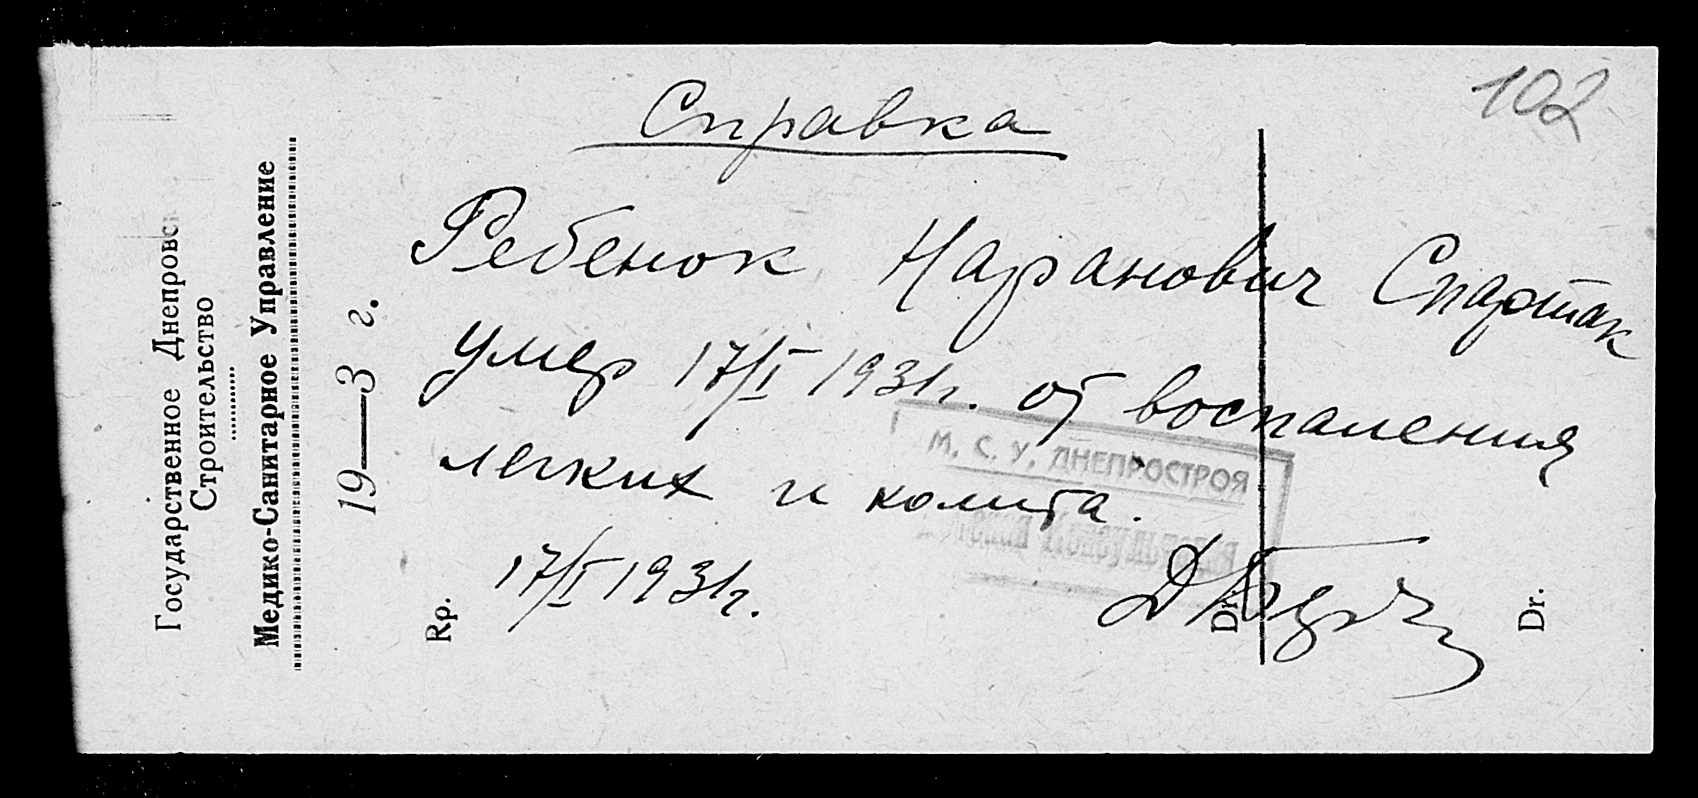 102
Справка
Ребенок Наранович Спартак
умер 17/I 1931г. от воспаления
легких и колита.
17/I 1931г.
М. С. У. ДНЕПРОСТРОЯ
Детская Консультация
Государственное Днепровс
Строительство
Медико-Санитарное Управление
19—3 г.
Rp.
Dr.
Dr.